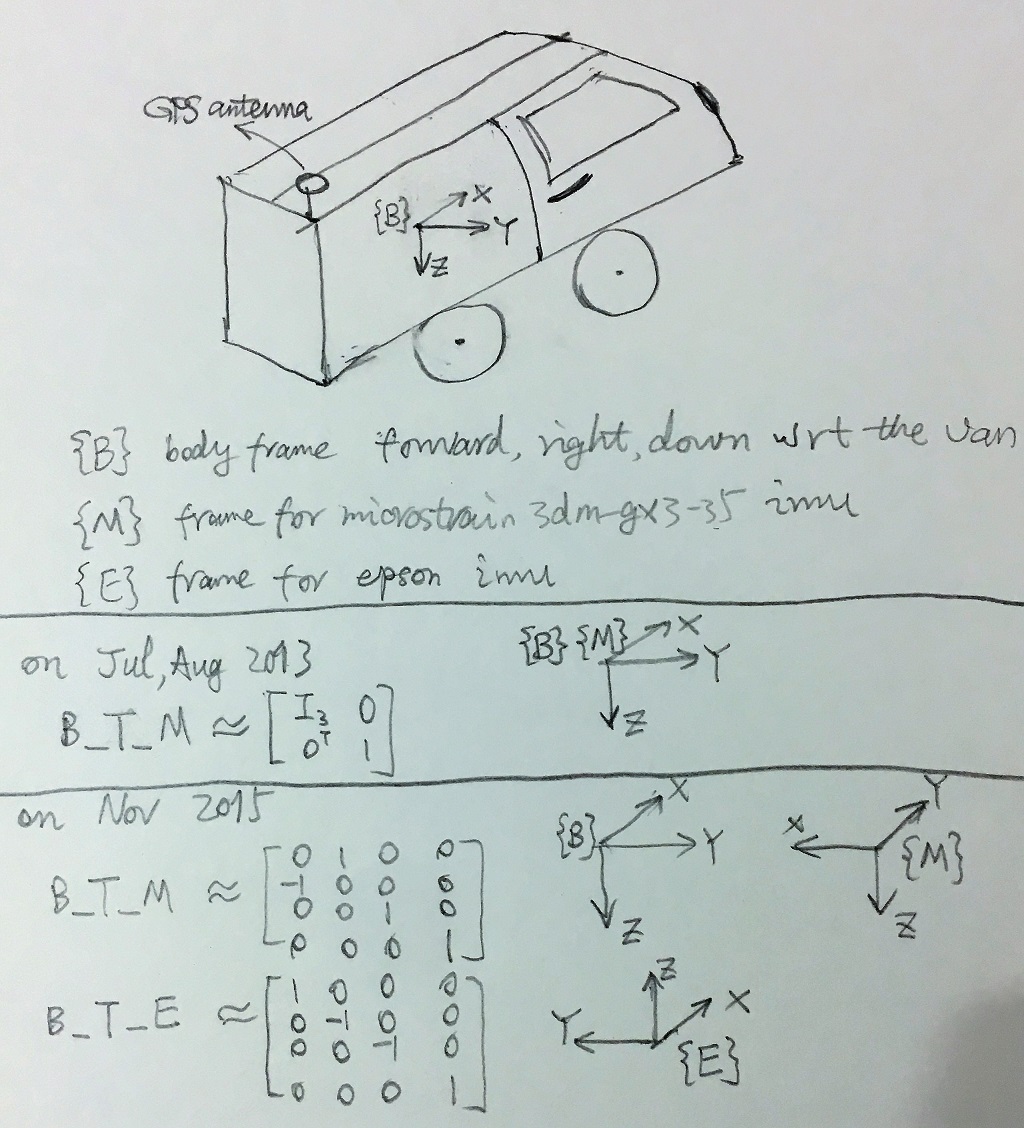 GPS antenna
{B} X
Y
Z
{B} body frame forward, right, down wrt the van
{M} frame for microstrain 3dm-gx3-35 imu
{E} frame for epson imu
on Jul, Aug 2013
{B} {M} X
Y
Z
B_T_M ≈ [ I₃ 0
0ᵀ 1 ]
on Nov 2015
{B} X
Y
Z
X Y
{M}
Z
B_T_M ≈ [ 0 1 0 0
-1 0 0 0
0 0 1 0
0 0 0 1 ]
B_T_E ≈ [ 1 0 0 0
0 -1 0 0
0 0 -1 0
0 0 0 1 ]
Z
Y X
{E}